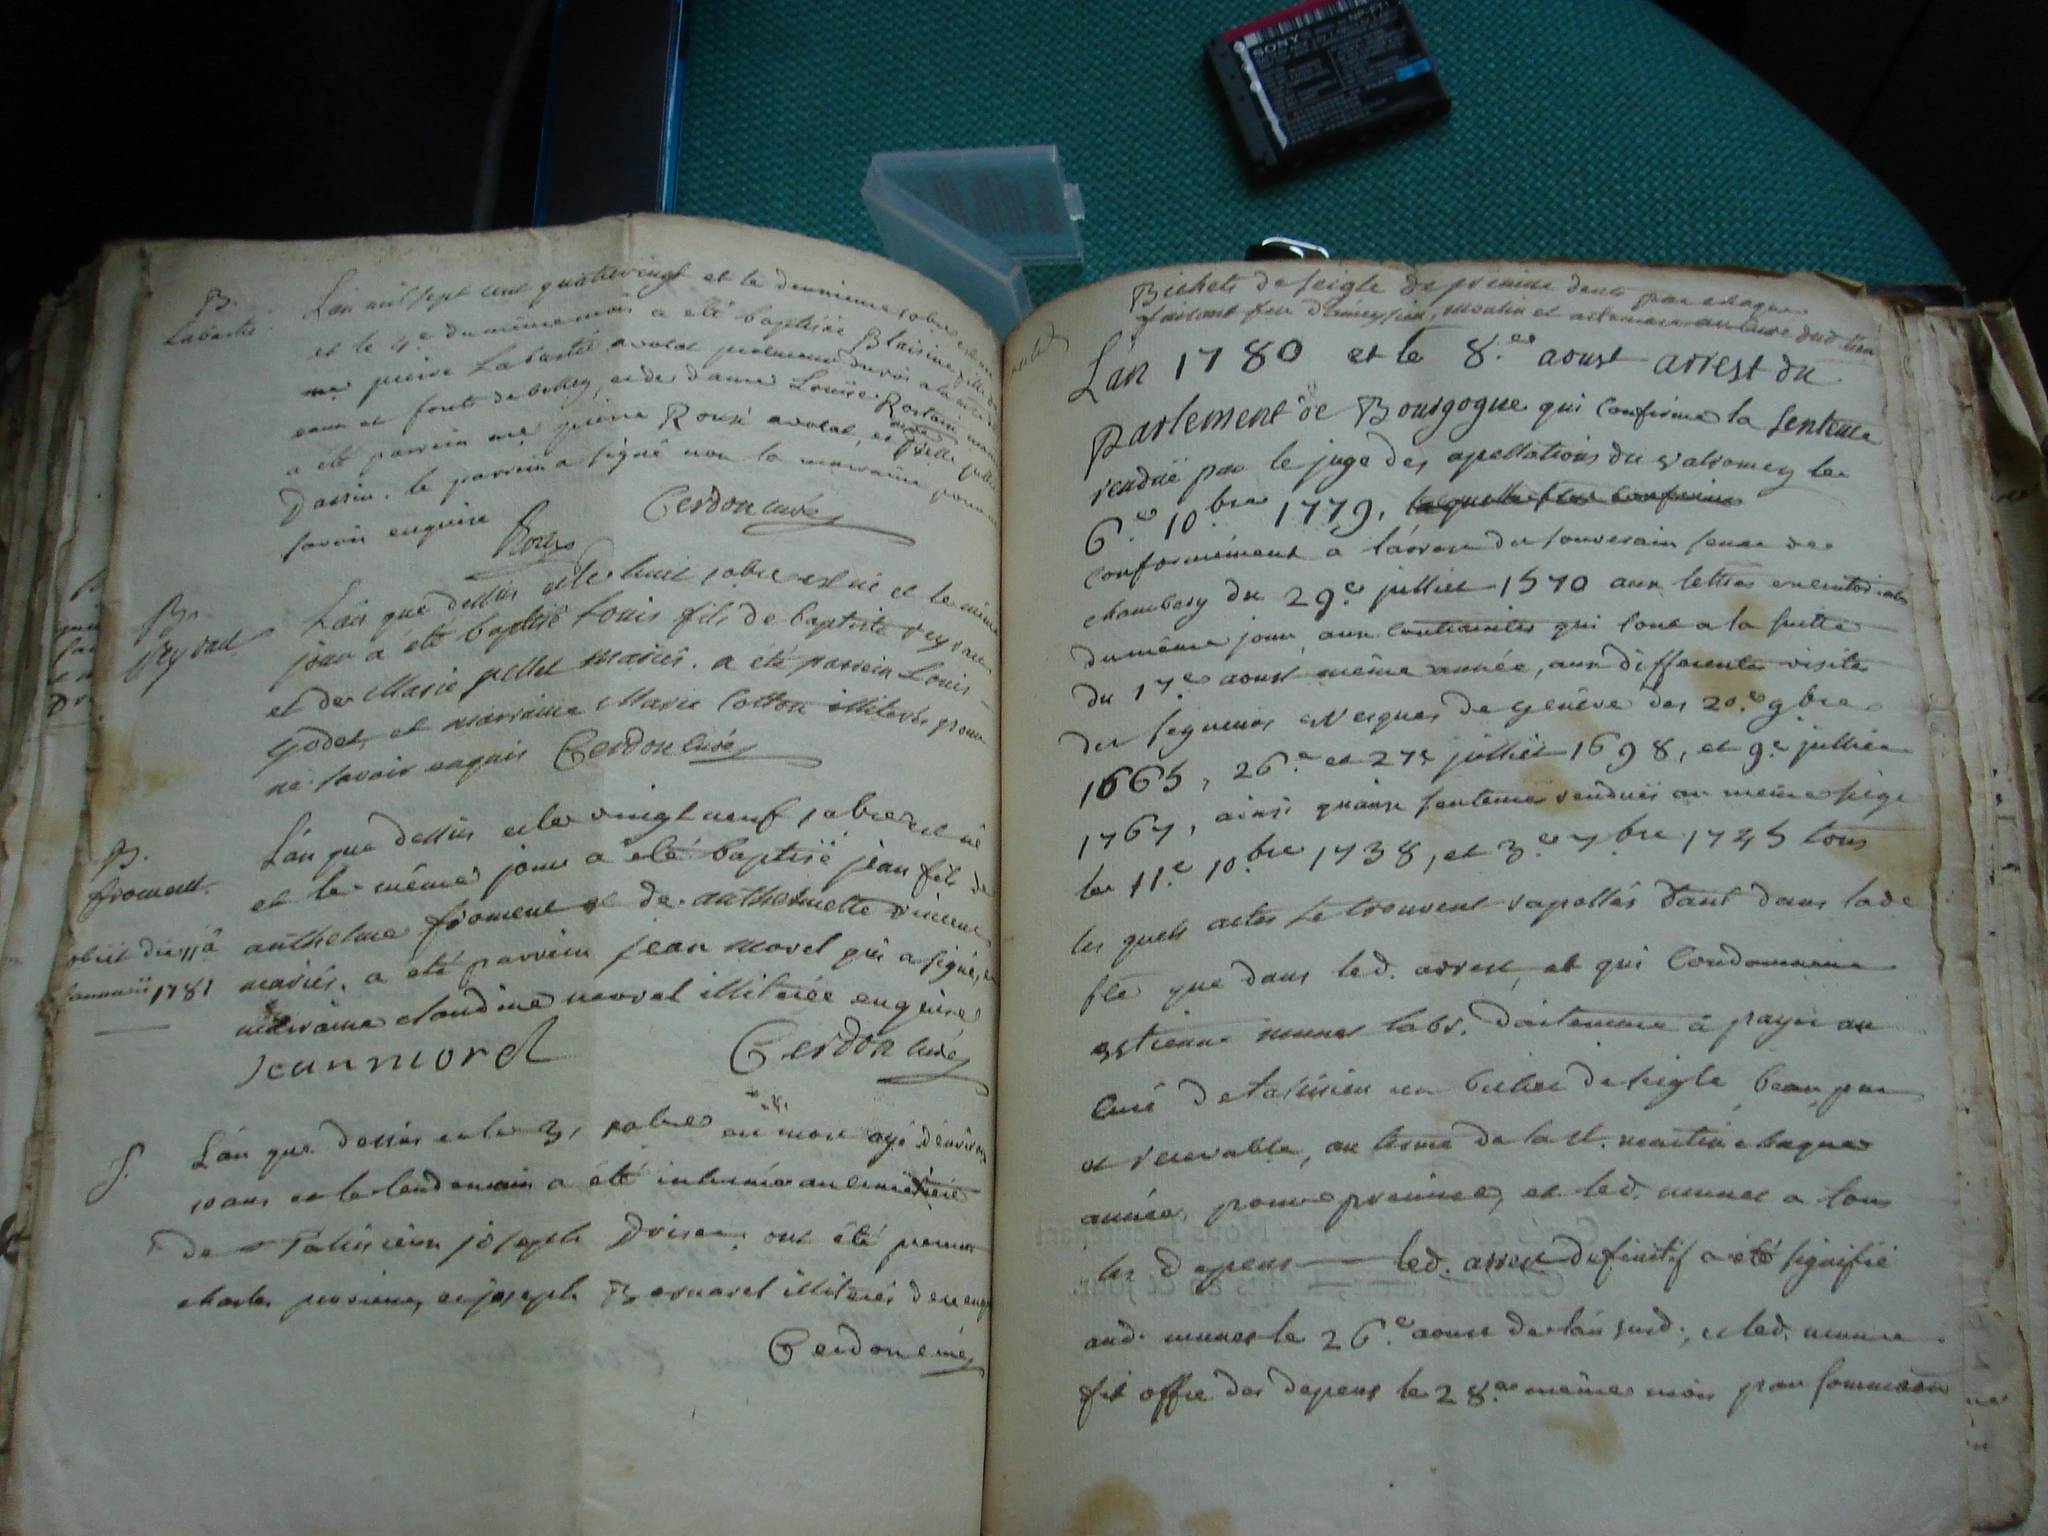 SONY
NP-FT1
B.
Labastie.
L'an mil sept cent quatrevingt et le deuxieme 10bre est née
et le 4e du même mois a été baptisée Blaisine fille de
me pierre Labastie avocat procureur du roi
eaux et forets de belley, et de dame Louise Rostain mariés
a été parrein me pierre Roux avocat, et
Dassin. le parrein a signé non la marraine pour ne
savoir enquise
Roux
Cerdon curé
B.
Veyrat
L'an que dessus et le huit 10bre est né et le même
jour a été baptisé Louis fils de baptiste veyrat
et de Marie pellet mariés. a été parrein Louis
godet, et marraine Marie Cotton illiterés pour
ne savoir enquis Cerdon curé
B.
froment.
obiit die
januarii 1781
L'an que dessus et le vingt neuf 10bre est né
et le même jour a été baptisé jean fils de
anthelme froment et de anthelmette vincent
mariés. a été parrein jean morel qui a signé, et
marraine claudine morel illiterée enquise
jean morel
Cerdon curé
S.
L'an que dessus et le 31 10bre est mort agé d'environ
10 ans et le lendemain a été inhumé au cimetiere
de Talissieu joseph ont été presents
charles et joseph Bernard illiterés de ce enquis
Cerdon curé
Bichets de seigle de prémice deus par chaque
faisant feu d'ameysieu, moulin et artemare au curé dud. lieu
L'an 1780 et le 8.e aoust arrest du
Parlement de Bourgogne qui confirme la sentence
renduë par le juge des apellations du valromey le
6.e 10bre 1779, laquelle confirme
conformément a l'arrest du souverain senat de
chambery du 29.e juillet 1570 aux lettres
du même jour, aux contraintes qui sont a la suitte
du 17.e aoust même année, aux differentes visites
des seigneurs evesques de genève des 20.e 9bre
1665, 26.e et 27e juillet 1698, et 9.e juillet
1767, ainsi qu'aux sentences renduës au même siège
le 11.e 10bre 1738, et 3.e 7bre 1745 tous
les quels actes se trouvent rapellés tant dans lade
ste que dans led. arrest, et qui Condamne
estienne labr. d'artemare à payer au
Curé de talissieu un bichet de seigle beau, pur
et recevable, au terme de la st. martin chaque
année, pour prémice, et led. a tous
les depens — led. arrest definitif a été signifié
aud. le 26.e aoust de l'an susd., et led.
fit offre des depens le 28.e même mois par